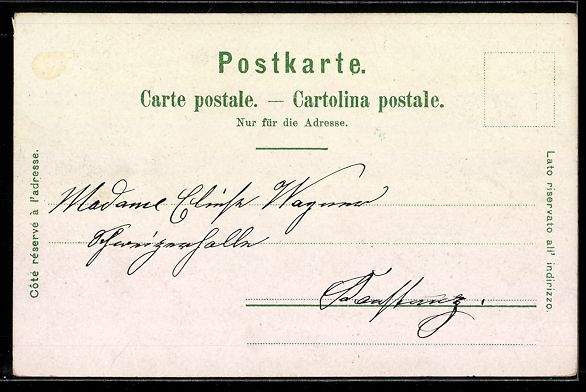 Postkarte.
Carte postale. — Cartolina postale.
Nur für die Adresse.
Côté réservé à l'adresse.
Lato riservato all' indirizzo.
Madame Elise Wagner
Schweizerhalle
Constanz.